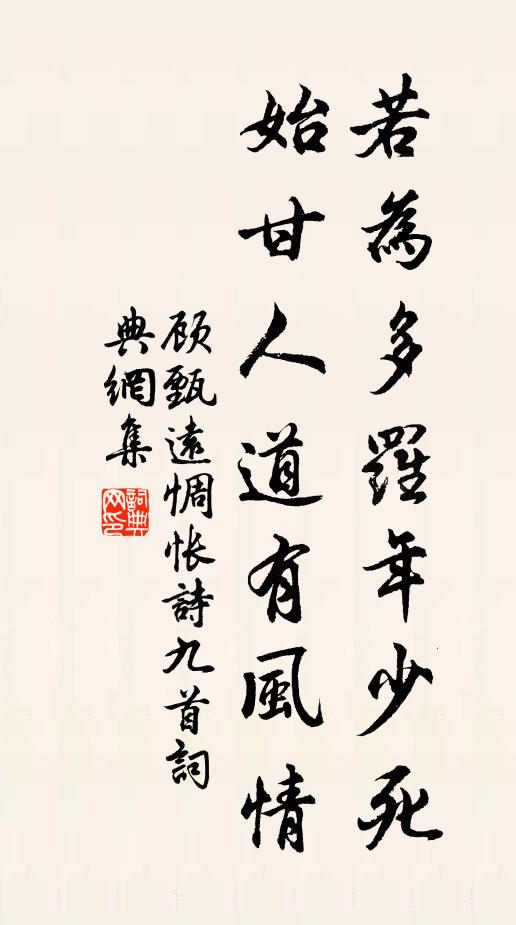 若為多羅年少死
始甘人道有風情
顾甄遠惆怅詩九首詞
典網集
詞典
网印